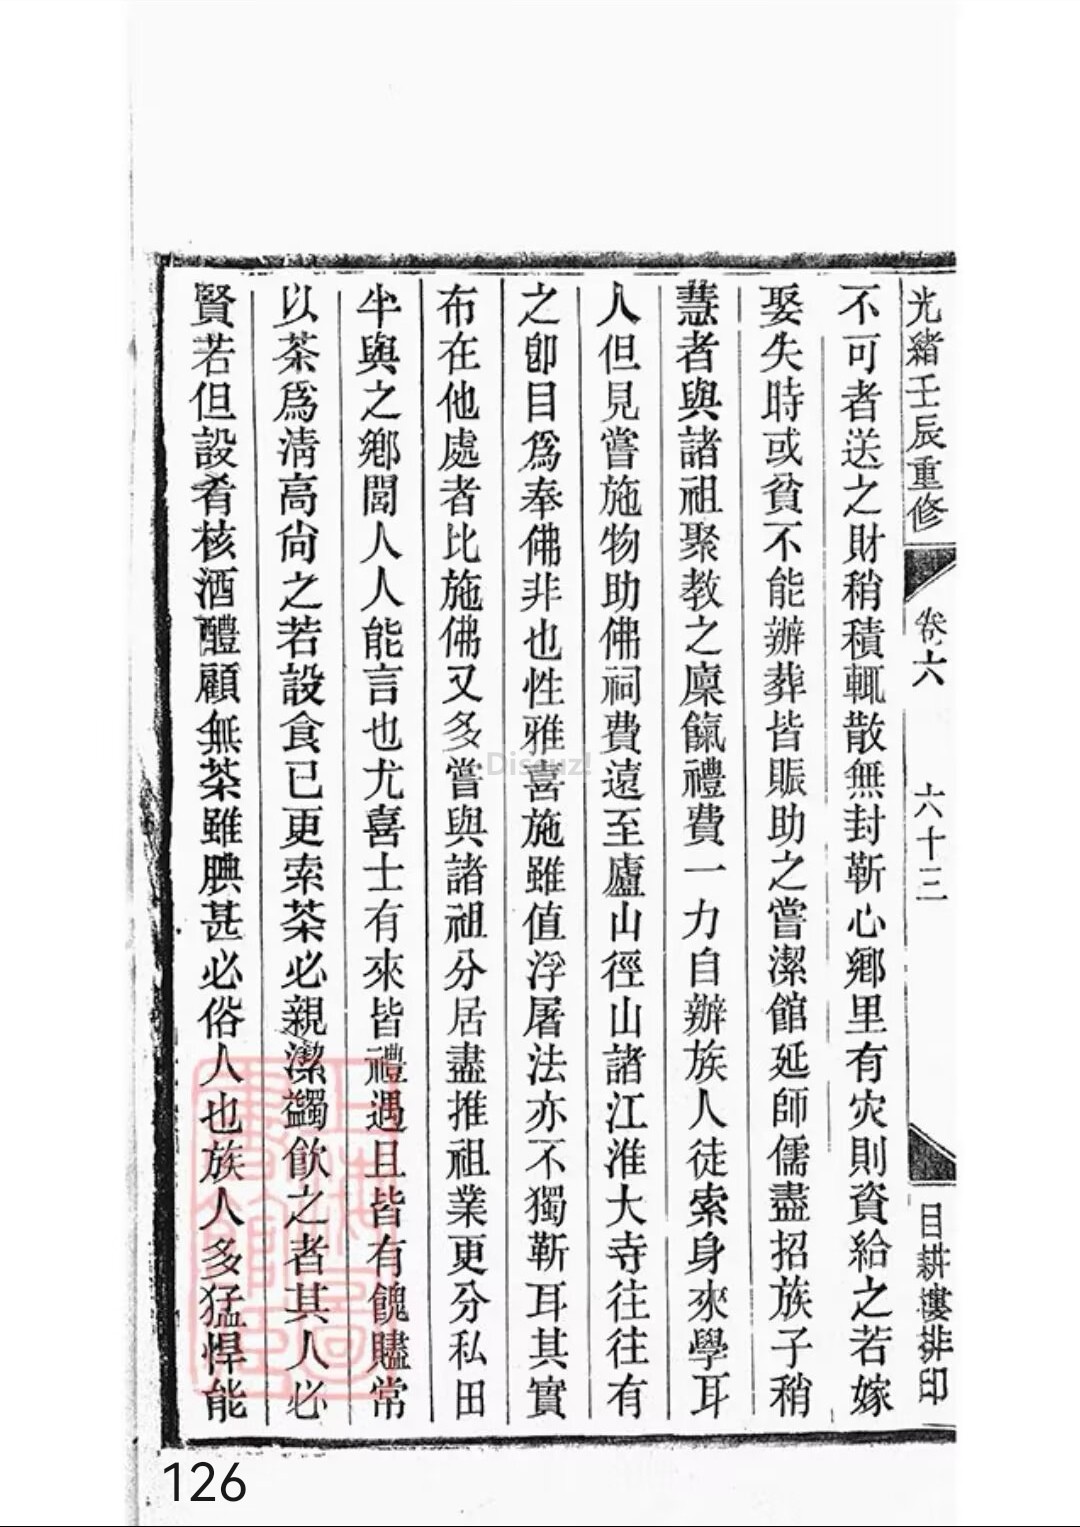 光緒壬辰重修 卷六 六十三 目耕樓排印
不可者送之財稍積輒散無封靳心鄉里有灾則資給之若嫁
娶失時或貧不能辦葬皆賑助之嘗潔館延師儒盡招族子稍
慧者與諸祖聚教之廩餼禮費一力自辦族人徒索身來學耳
人但見嘗施物助佛祠費遠至廬山徑山諸江淮大寺往往有
之卽目爲奉佛非也性雅喜施雖值浮屠法亦不獨靳耳其實
布在他處者比施佛又多嘗與諸祖分居盡推祖業更分私田
半與之鄉閭人人能言也尤喜士有來皆禮遇且皆有餽贐常
以茶爲淸高尙之若設食已更索茶必親潔蠲飮之者其人必
賢若但設肴核酒醴顧無茶雖腆甚必俗人也族人多猛悍能
Discuz!
126